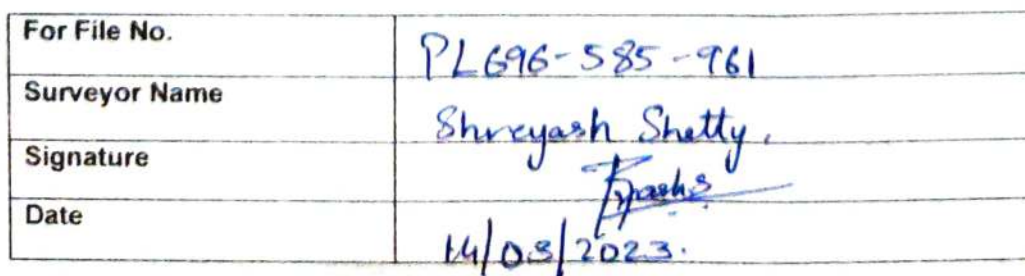 For File No. PL696-585-961
Surveyor Name Shreyash Shetty.
Signature
Date 14/03/2023.